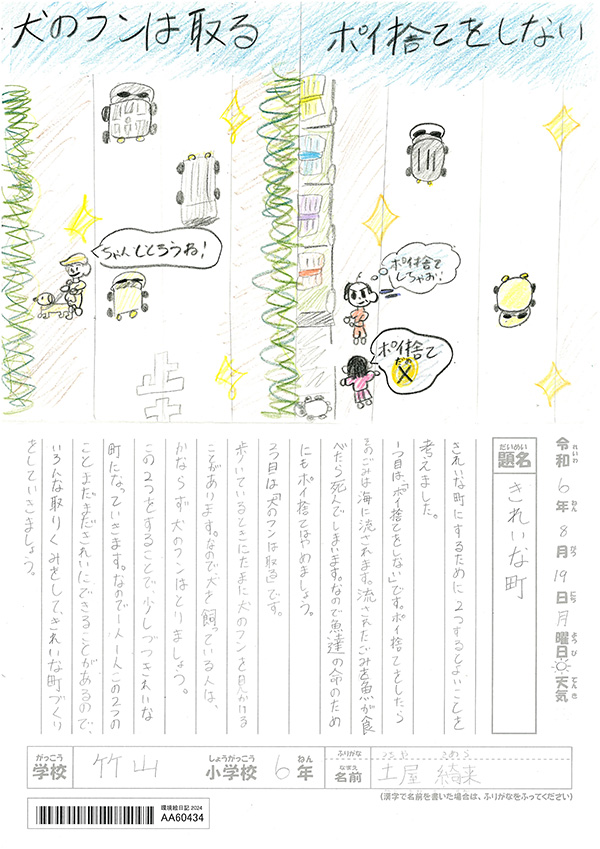 犬のフンは取る
ポイ捨てをしない
ちゃんととろうね!
止
ポイ捨て
しちゃお!
ポイ捨て
だめ
X
令和6年8月19日月曜日 天気
れいわ ねん がつ にち ようび てんき
だいめい
題名
きれいな町
きれいな町にするために2つするとよいことを
考えました。
1つ目は「ポイ捨てをしない」です。ポイ捨てをしたら
そのごみは海に流されます。流されたごみを魚が食
べたら死んでしまいます。なので魚達の命のため
にもポイ捨てはやめましょう。
2つ目は「犬のフンは取る」です。
歩いているときにたまに犬のフンを見かける
ことがあります。なので犬を飼っている人は、
かならず犬のフンはとりましょう。
この2つをすることで、少しづつきれいな
町になっていきます。なので一人一人この2つの
ことまだまだきれいにできることがあるので、
いろんな取りくみをして、きれいな町づくり
をしていきましょう。
がっこう しょうがっこう ねん
学校 竹山 小学校 6年
ふりがな
なまえ
名前 土屋 綺来
(漢字で名前を書いた場合は、ふりがなをふってください)
環境絵日記 2024
AA60434